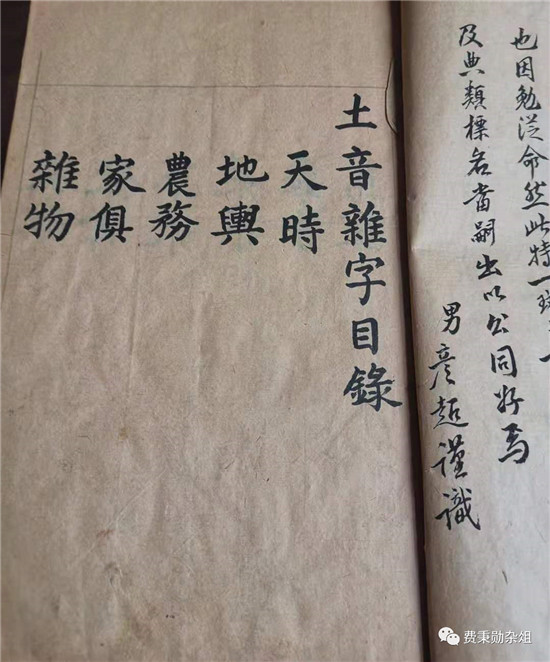 也因勉從命然此特一斑
及典類標名當嗣出以公同好焉
男彥超謹識
土音雜字目錄
天時
地輿
農務
家俱
雜物
费秉勋杂俎